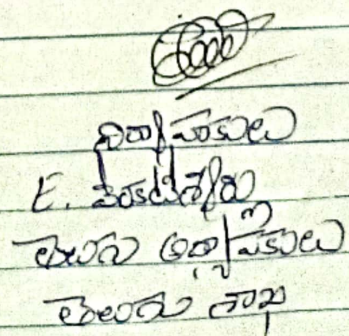 నిర్వాహకులు
E. వెంకటేశ్వర్లు
తెలుగు అధ్యాపకులు
తెలుగు శాఖ